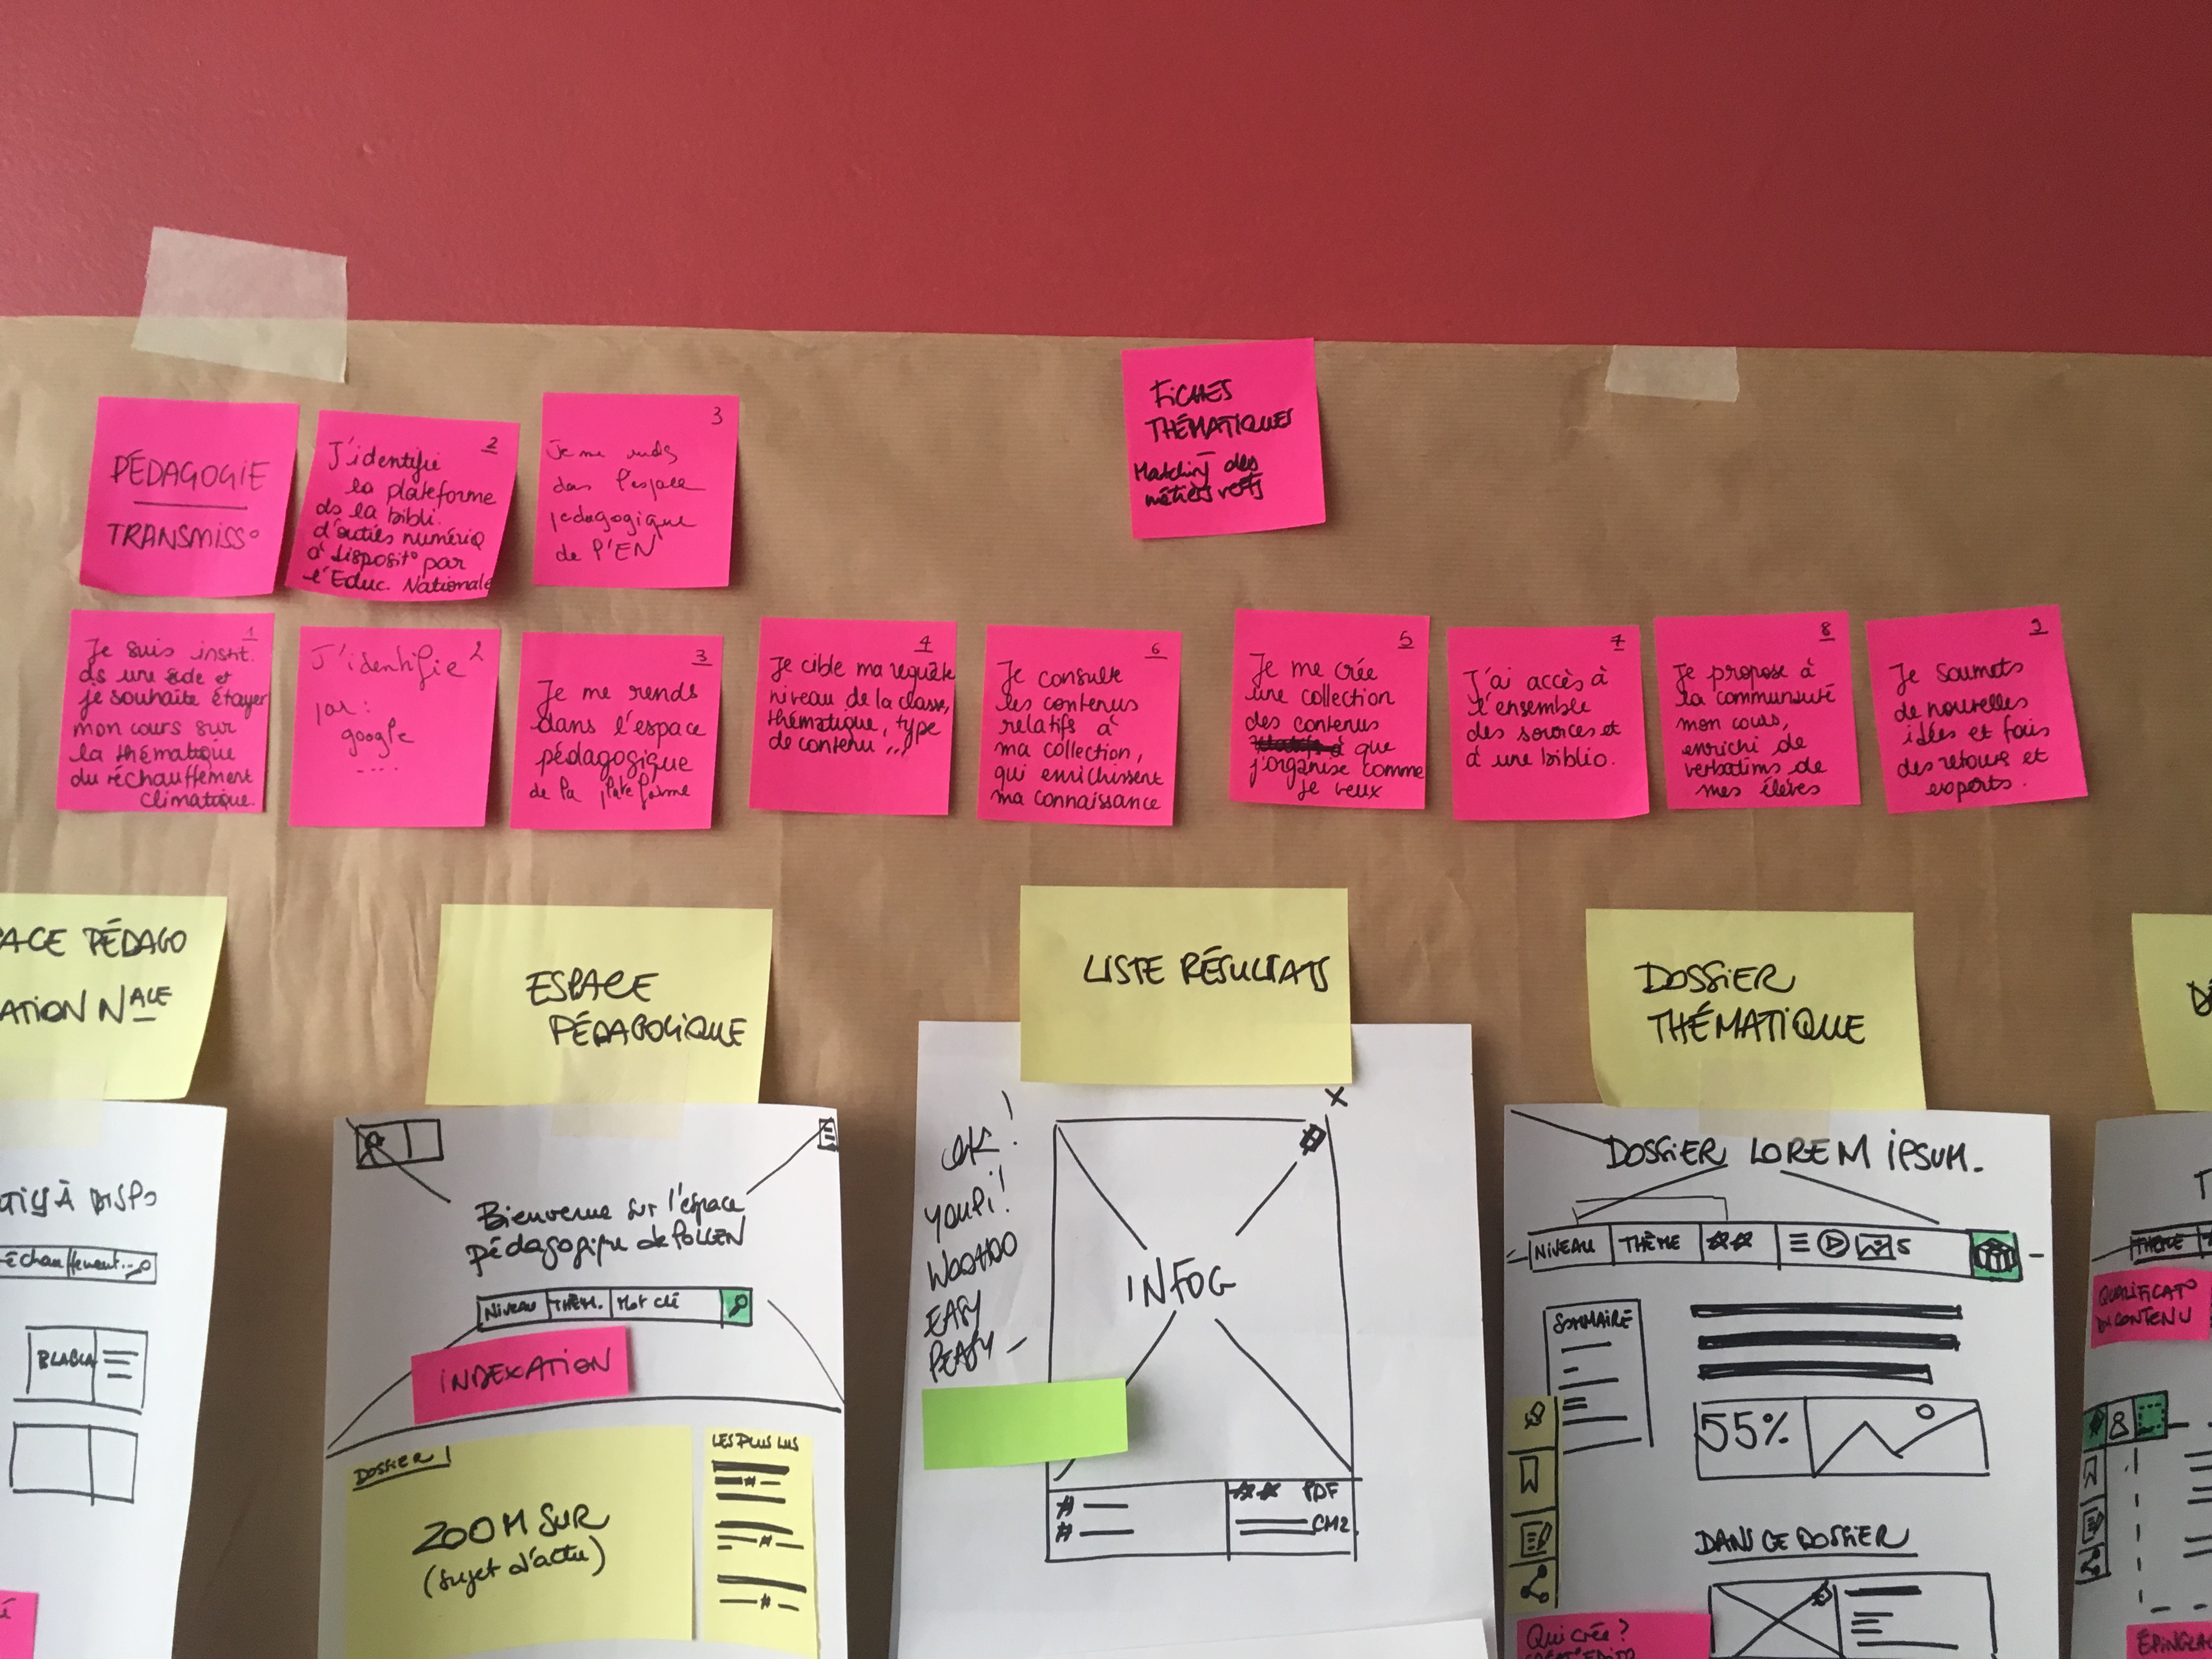 PÉDAGOGIE
TRANSMISS°
2
J'identifie
la plateforme
ds la bibli.
d'outils numériq
à disposit° par
l'Educ. Nationale
3
Je me rends
dans l'espace
pedagogique
de l'EN
FICHES
THÉMATIQUES
Matching des
métiers refs
1
Je suis instit.
ds une
et
je souhaite étayer
mon cours sur
la thématique
du réchauffement
climatique.
J'identifie 2
par:
google
....
3
Je me rends
dans l'espace
pédagogique
de la plateforme
4
Je cible ma requête
niveau de la classe,
thématique, type
de contenu ...
6
Je consulte
les contenus
relatifs à
ma collection,
qui enrichissent
ma connaissance
5
Je me crée
une collection
des contenus
que
j'organise comme
je veux
7
J'ai accès à
l'ensemble
des sources et
à une biblio.
8
Je propose à
la communauté
mon cours,
enrichi de
verbatims de
mes élèves
9
Je soumets
de nouvelles
idées et fais
des retours et
experts.
ACE PÉDAGO
ATION Nale
À DISPO
échauffement...
BLABLA
ESPACE
PÉDAGOGIQUE
Bienvenue sur l'espace
pédagogique de POLLEN
NIVEAU THÈM. Mot clé
INDEXATION
DOSSIER 1
ZOOM SUR
(sujet d'actu)
LES PLUS LUS
LISTE RÉSULTATS
OK!
YOUPI!
WOOHOO
EASY
PEASY
X
INFOG
#
#
PDF
CM2
DOSSIER
THÉMATIQUE
DOSSIER LOREM IPSUM.
NIVEAU THÈME
SOMMAIRE
55%
DANS CE DOSSIER
Qui crée?
T
THÈME
QUALIFICAT°
DU CONTENU
8
ÉPINGLA